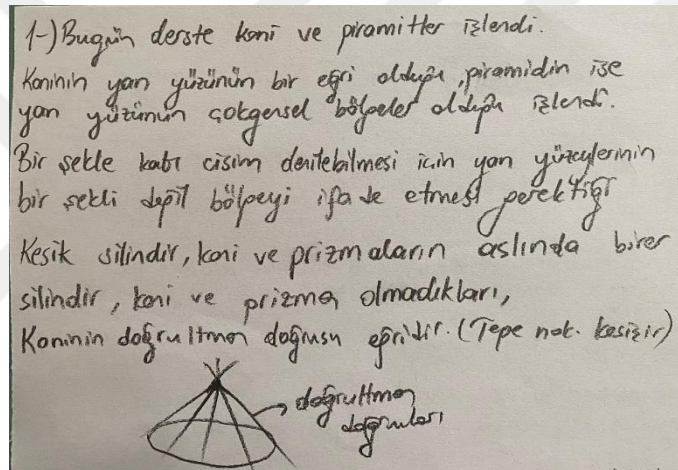 1-) Bugün derste koni ve piramitler işlendi.
Koninin yan yüzünün bir eğri olduğu, piramidin ise
yan yüzünün çokgensel bölgeler olduğu işlendi.
Bir şekle katı cisim denilebilmesi için yan yüzeylerinin
bir şekli değil bölgeyi ifade etmesi gerektiği
Kesik silindir, koni ve prizmaların aslında birer
silindir, koni ve prizma olmadıkları,
Koninin doğrultman doğrusu eğridir. (Tepe nok. kesişir)
doğrultman
doğruları